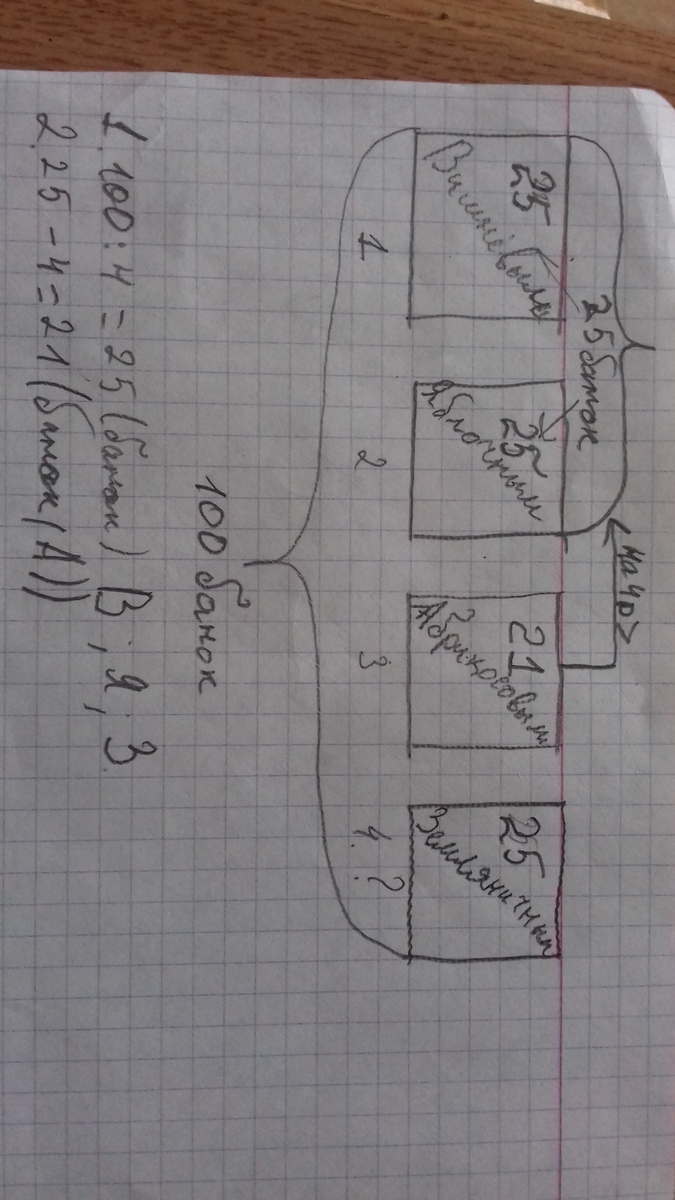 25 банок
на 4 б >
25
25
21
25
Вишнёвый
Яблочным
Абрикосовым
Земляничным
1
2
3
4. ?
100 банок
1. 100 : 4 = 25 (банок) В ; Я ; З
2. 25 - 4 = 21 (банок (А))